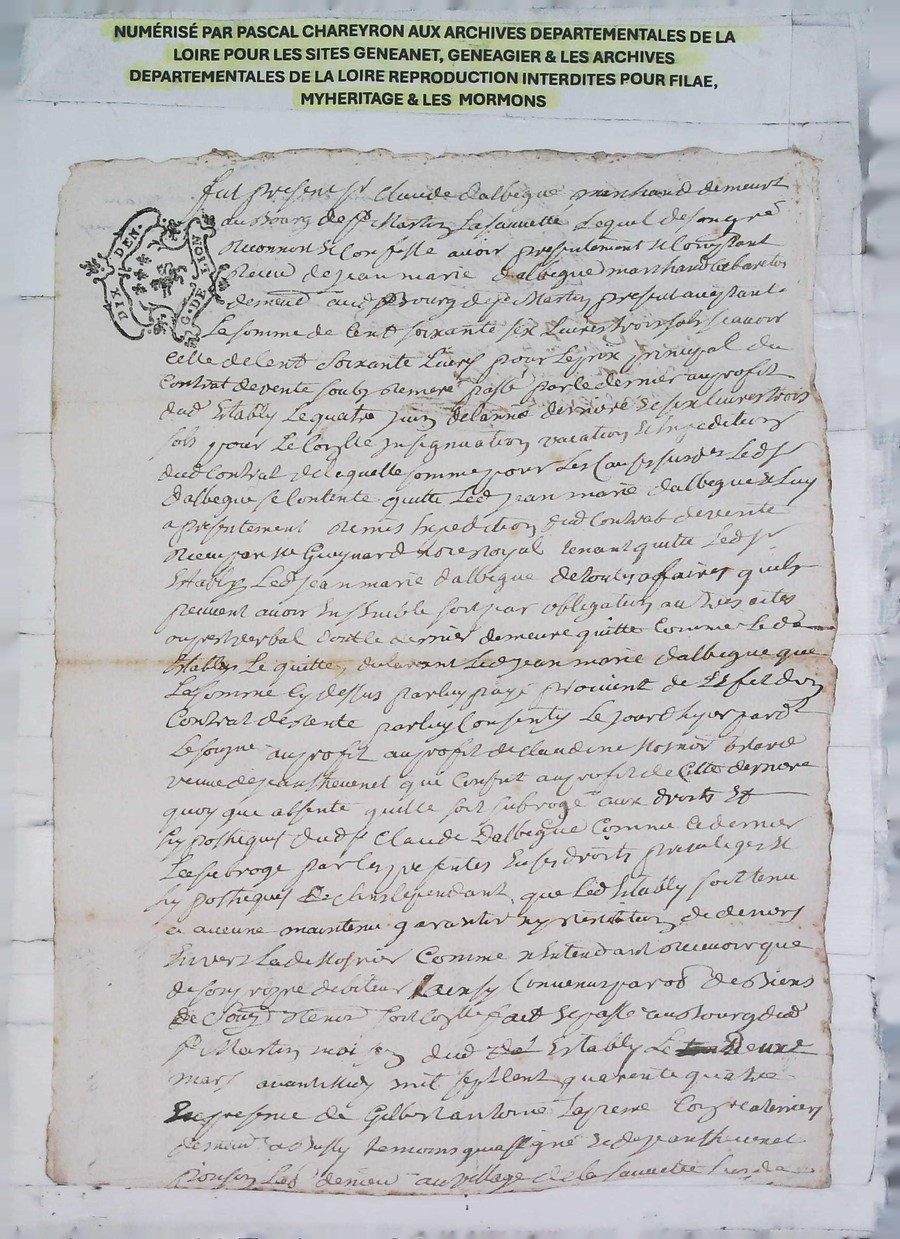 NUMÉRISÉ PAR PASCAL CHAREYRON AUX ARCHIVES DEPARTEMENTALES DE LA
LOIRE POUR LES SITES GENEANET, GENEAGIER & LES ARCHIVES
DEPARTEMENTALES DE LA LOIRE REPRODUCTION INTERDITES POUR FILAE,
MYHERITAGE & LES MORMONS
DIX DEN.
G. DE LION
fut present sr Claude dalbegue marchand demeurt
au Bourg de st Martin La sauvette Lequel de son gré
Reconnoit et Confesse avoir presentement et Comptant
Receu de jean marie dalbegue marchand Cabaretier
demeut aud Bourg de st Martin present acceptant
La somme de Cent soixante six Livres trois sols scavoir
Celle de Cent Soixante Livres pour Le prix principal du
Contrat de vente soubs Remeré passé par le dernier au profit
dud Estably Le quatre juin de lanné derniere et six Livres trois
sols pour Le Corolle insignuation vacation et Expeditions
dud Contrat de laquelle somme pour Les Causes susdes Led sr
Dalbegue se Contente quitte Led jean marie dalbegue et Luy
a presentement Remis Expedition dud Contrat de vente
Receu par Me Guaynard nore Royal tenant quitte Led sr
Estably Led jean marie dalbegue de toutes affaires quils
peuvent avoir Ensemble soit par obligation autres actes
ou pret verbal dont le dernier demeure quitte Comme Led
Estably Le quitte, declarant Led jean marie dalbegue que
La somme Cy dessus par luy payé provient de
Contrat de vente par luy Consenty Le jourdhyer pardt
Le soigne au profit au profit de Claudine
veuve de jean Thevenet que Consent au profit de Cette derniere
quoy que absente quelle soit subrogé aux droits Et
hypotheques dud sr Claude Dalbegue Comme Ce dernier
La subroge par Les presentes En ses droits privileges et
hypotheques sans Cependant que Led Estably soit tenu
a aucune maintenu garantir ny restitution de deniers
Envers La de Comme nEntendant Recevoir que
de son propre debiteur ainsy Convenus des Biens
de soit fait et passé au Bourg dud
st Martin dud Estably Le Deuxe
mars avant midy mil sept Cent quarente quatre
En presence de Gilbert antoine Lapreme
demeut a temoins qua signé et de jean Thevenet
demeut au village de la sauvette